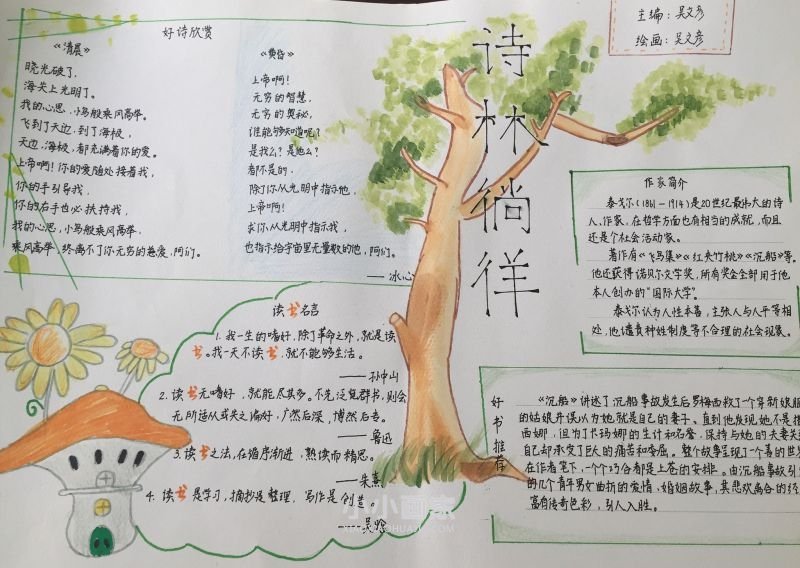 主编：吴文彦
绘画：吴文彦
诗林徜徉
好诗欣赏
《清晨》
晓光破了，
海关上光明了。
我的心思，小鸟般乘风高举。
飞到了天边，到了海极，
天边，海极，都充满着你的爱。
上帝啊！你的爱随处接着我，
你的手引导我，
你的右手也必扶持我，
我的心思，小鸟般乘风高举，
乘风高举，终离不了你无穷的慈爱，阿们。
《黄昏》
上帝啊！
无穷的智慧，
无穷的奥秘，
谁能够知道呢？
是我么？是她么？
都不是的，
除了你从光明中指示他，
上帝啊！
求你从光明中指示我，
也指示给宇宙里无量数的他，阿们。
——冰心
作家简介
泰戈尔(1861－1914)是20世纪最伟大的诗
人、作家，在哲学方面也有相当的成就，而且
还是个社会活动家。
著作有《飞鸟集》《红夹竹桃》《沉船》等。
他还获得诺贝尔文学奖，所有奖金全部用于他
本人创办的"国际大学"。
泰戈尔认为人性本善，主张人与人平等相
处，他谴责种姓制度等不合理的社会现象。
读书名言
1. 我一生的嗜好，除了革命之外，就是读
书。我一天不读书，就不能够生活。
——孙中山
2. 读书无嗜好，就能尽其多。不先泛览群书，则会
无所适从或失之偏好，广然后深，博然后专。
——鲁迅
3. 读书之法，在循序渐进，熟读而精思。
——朱熹
4. 读书是学习，摘抄是整理，写作是创造
——吴晗
好书推荐
《沉船》讲述了沉船事故发生后罗梅西救了一个穿新娘服
的姑娘并误以为她就是自己的妻子。直到他发现她不是梅
西娜，但为了卡玛娜的生计和名誉，保持与她的夫妻关
自己却承受了巨大的痛苦和委屈。整个故事呈现了一个善的世界
在作者笔下，一个个巧合都是上苍的安排。由沉船事故引
的几个青年男女曲折的爱情、婚姻故事，其悲欢离合的经
富有传奇色彩，引人入胜。
小小画家